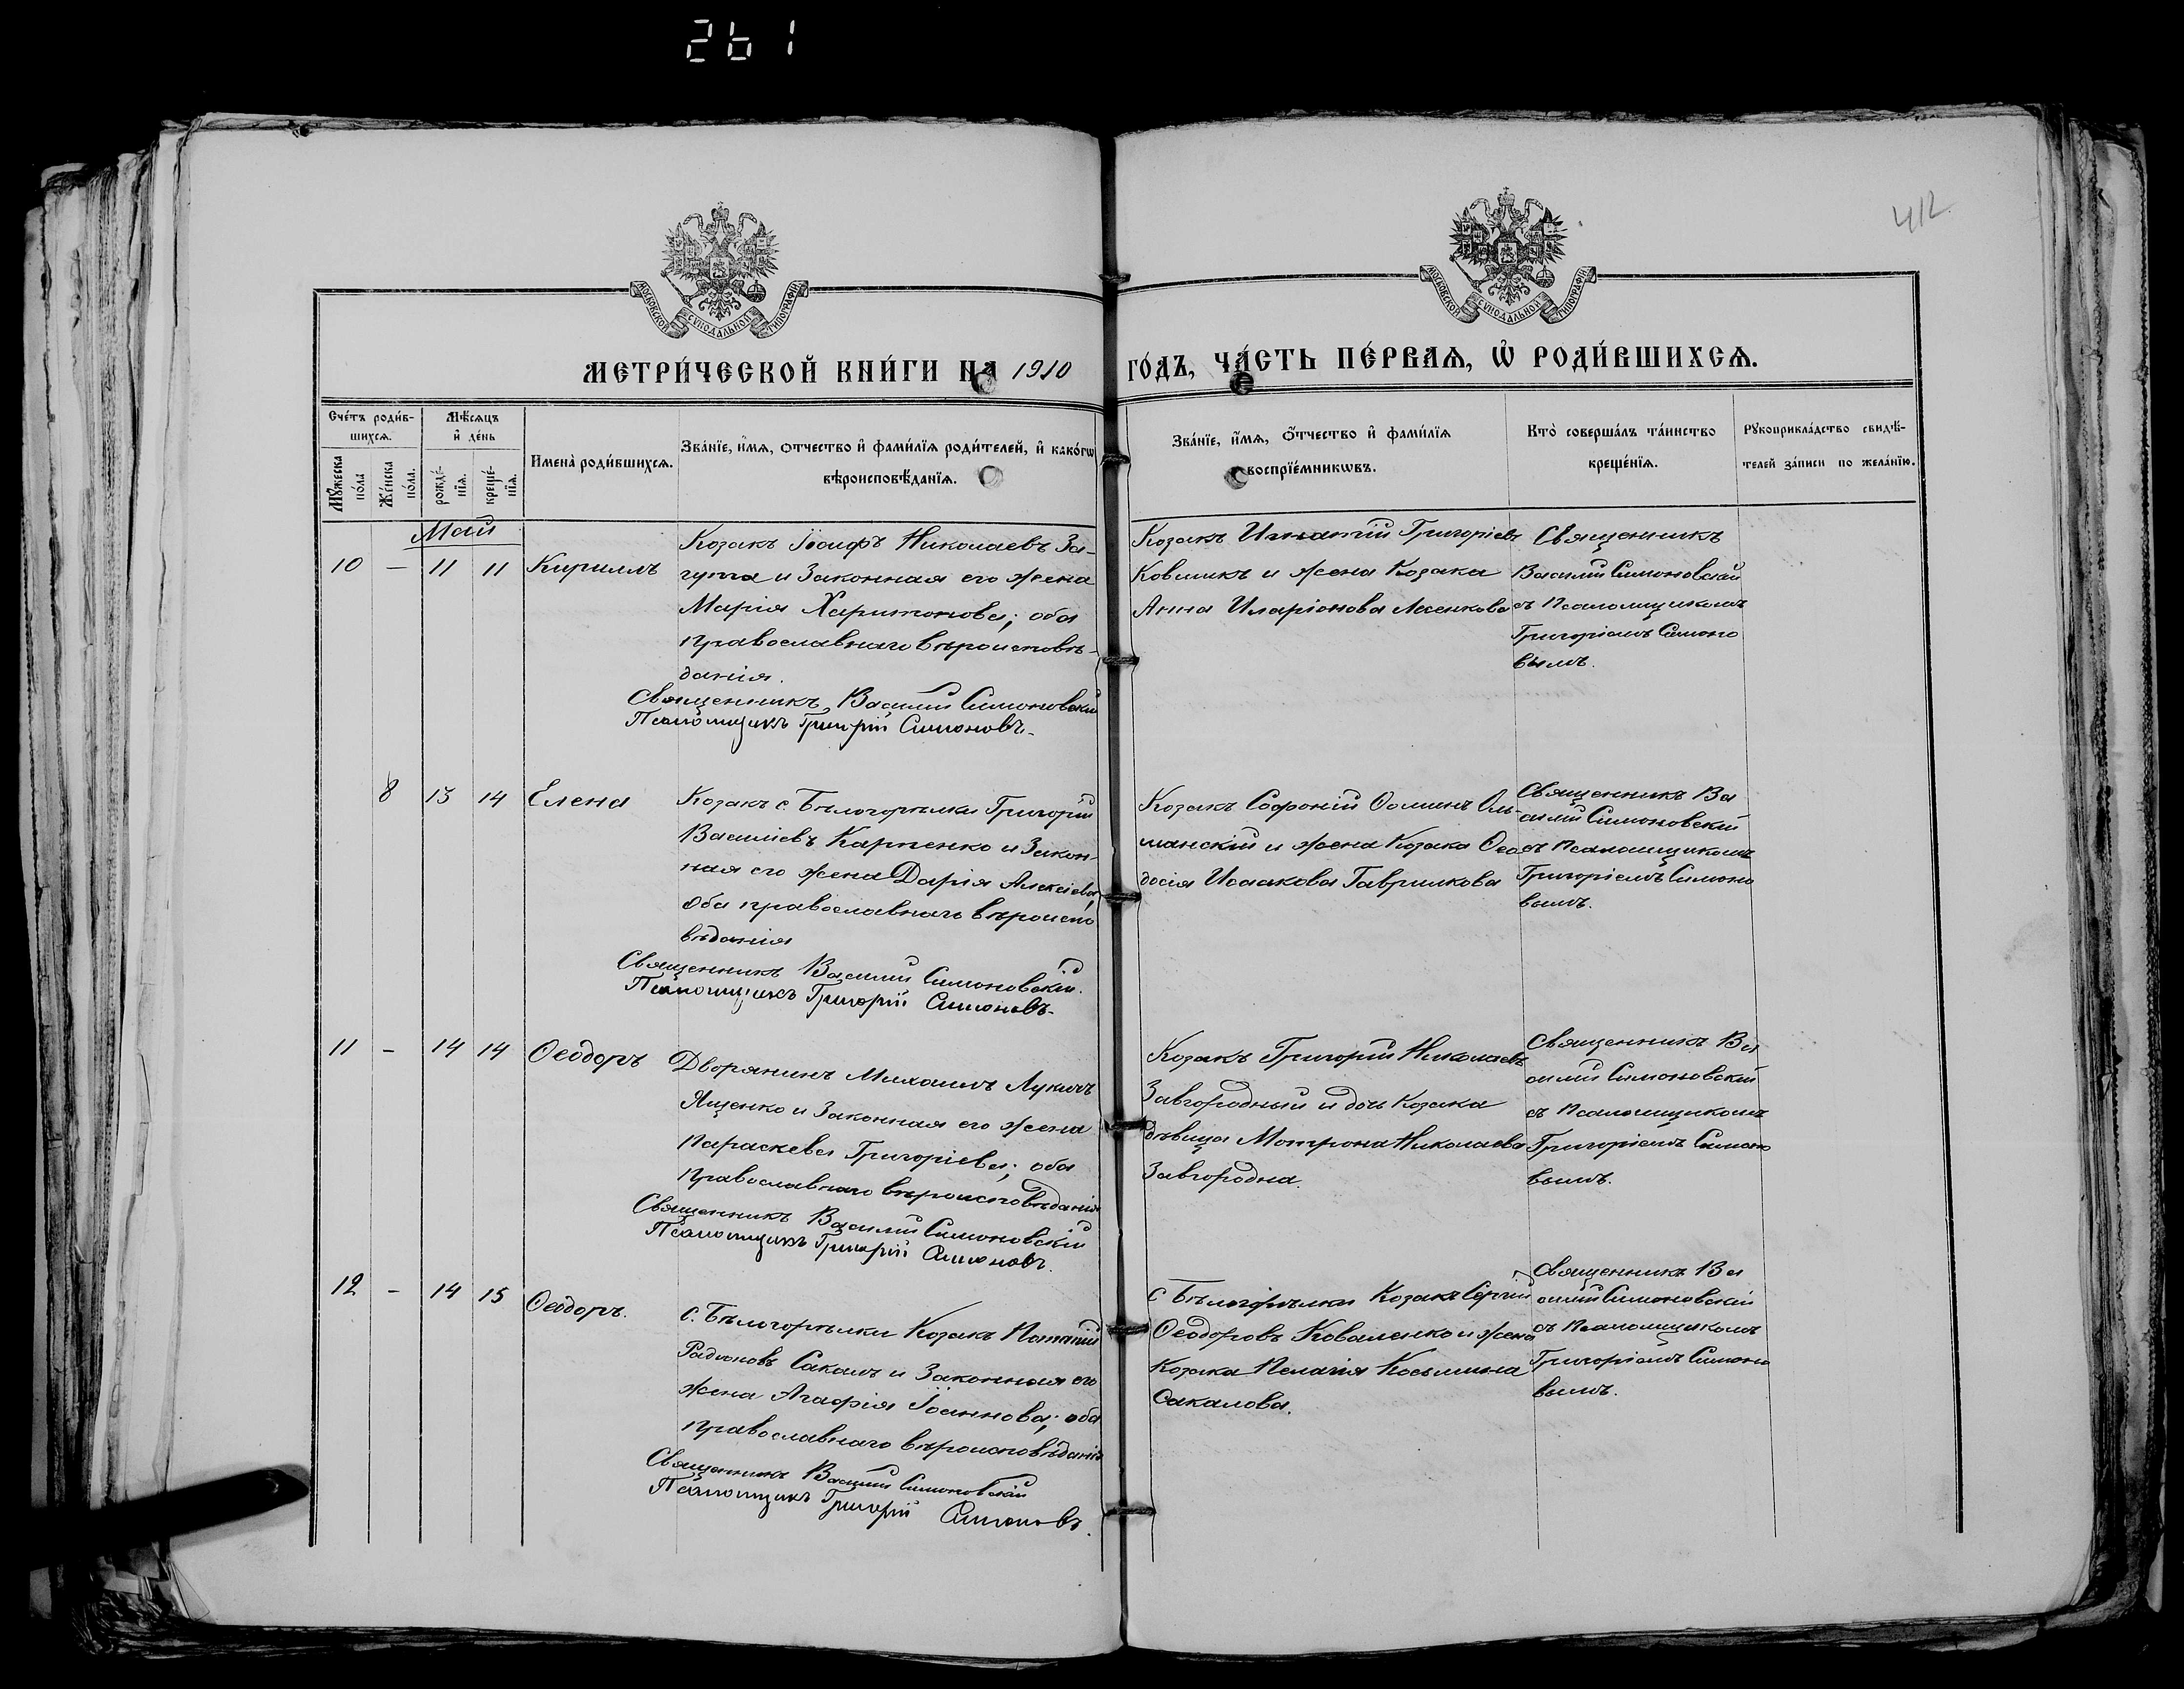 261
412
МОСКОВСКОЙ СѴНОДАЛЬНОЙ ТИПОГРАФІИ
МОСКОВСКОЙ СѴНОДАЛЬНОЙ ТИПОГРАФІИ
МЕТРИ́ЧЕСКОЙ КНИ́ГИ НА 1910 ГО́ДЪ, ЧА́СТЬ ПЕ́РВАѦ, Ѡ҆ РОДИ́ВШИХСѦ.
Сче́тъ роди́в-
шихсѧ.
Мꙋ́жеска по́ла
Же́нска по́ла.
Мѣ́сѧцъ
и҆ де́нь
рожде́-
нїѧ.
креще́-
нїѧ.
И҆мена̀ роди́вшихсѧ.
Зва́нїе, и҆́мѧ, ѻ҆́тчество и҆ фами́лїѧ роди́телей, и҆ како́гѡ
вѣроисповѣ́данїѧ.
Зва́нїе, и҆́мѧ, ѻ҆́тчество и҆ фами́лїѧ
воспрїе́мникѡвъ.
Кто̀ соверша́лъ та́инство
креще́нїѧ.
Рꙋкоприкла́дство свидѣ́-
телей за́писи по жела́нїю.
Май
10 — 11 11 Кириллъ
Козакъ Іосифъ Николаевъ За-
гупта и Законная его жена
Марія Харитонова; оба
православнаго вѣроисповѣ-
данія.
Священникъ Василій Симоновскій
Псаломщикъ Григорій Симоновъ.
Козакъ Игнатій Григоріевъ
Ковшикъ и жена Козака
Анна Иларіонова Лесенкова
Священникъ
Василій Симоновскій
съ Псаломщикомъ
Григоріемъ Симоно
вымъ.
8 13 14 Елена
Козакъ с Бѣлогорѣлки Григорій
Василіевъ Карпенко и Закон-
ная его жена Дарія Алексіева,
оба православнаго вѣроиспо
вѣданія
Священникъ Василій Симоновскій.
Псаломщикъ Григорій Симоновъ.
Козакъ Софроній Ѳоминъ Оль-
манскій и жена Козака Ѳео
досія Исаакова Гаврилкова
Священникъ Ва
силій Симоновскій
съ Псаломщикомъ
Григоріемъ Симоно
вымъ.
11 - 14 14 Ѳеодоръ
Дворянинъ Михаилъ Лукичъ
Ященко и Законная его жена
Параскева Григоріева; оба
православнаго вѣроисповѣданія
Священникъ Василій Симоновскій
Псаломщикъ Григорій Симоновъ.
Козакъ Григорій Николаевъ
Завгородный и дочь Козака
дѣвица Мотрона Николаева
Завгородна.
Священникъ Ва
силій Симоновскій
съ Псаломщикомъ
Григоріемъ Симоно
вымъ.
12 - 14 15 Ѳеодоръ.
с. Бѣлогорѣлки Козакъ Потапій
Радіоновъ Сакалъ и Законная его
жена Агафія Іоаннова; оба
православнаго вѣроисповѣданія
Священникъ Василій Симоновскій
Псаломщикъ Григорій Симоновъ.
с Бѣлогорѣлки Козакъ Сергій
Ѳеодоровъ Коваленко и жена
Козака Пелагія Косьмина
Сакалова.
Священникъ Ва
силій Симоновскій
съ Псаломщикомъ
Григоріемъ Симоно
вымъ.